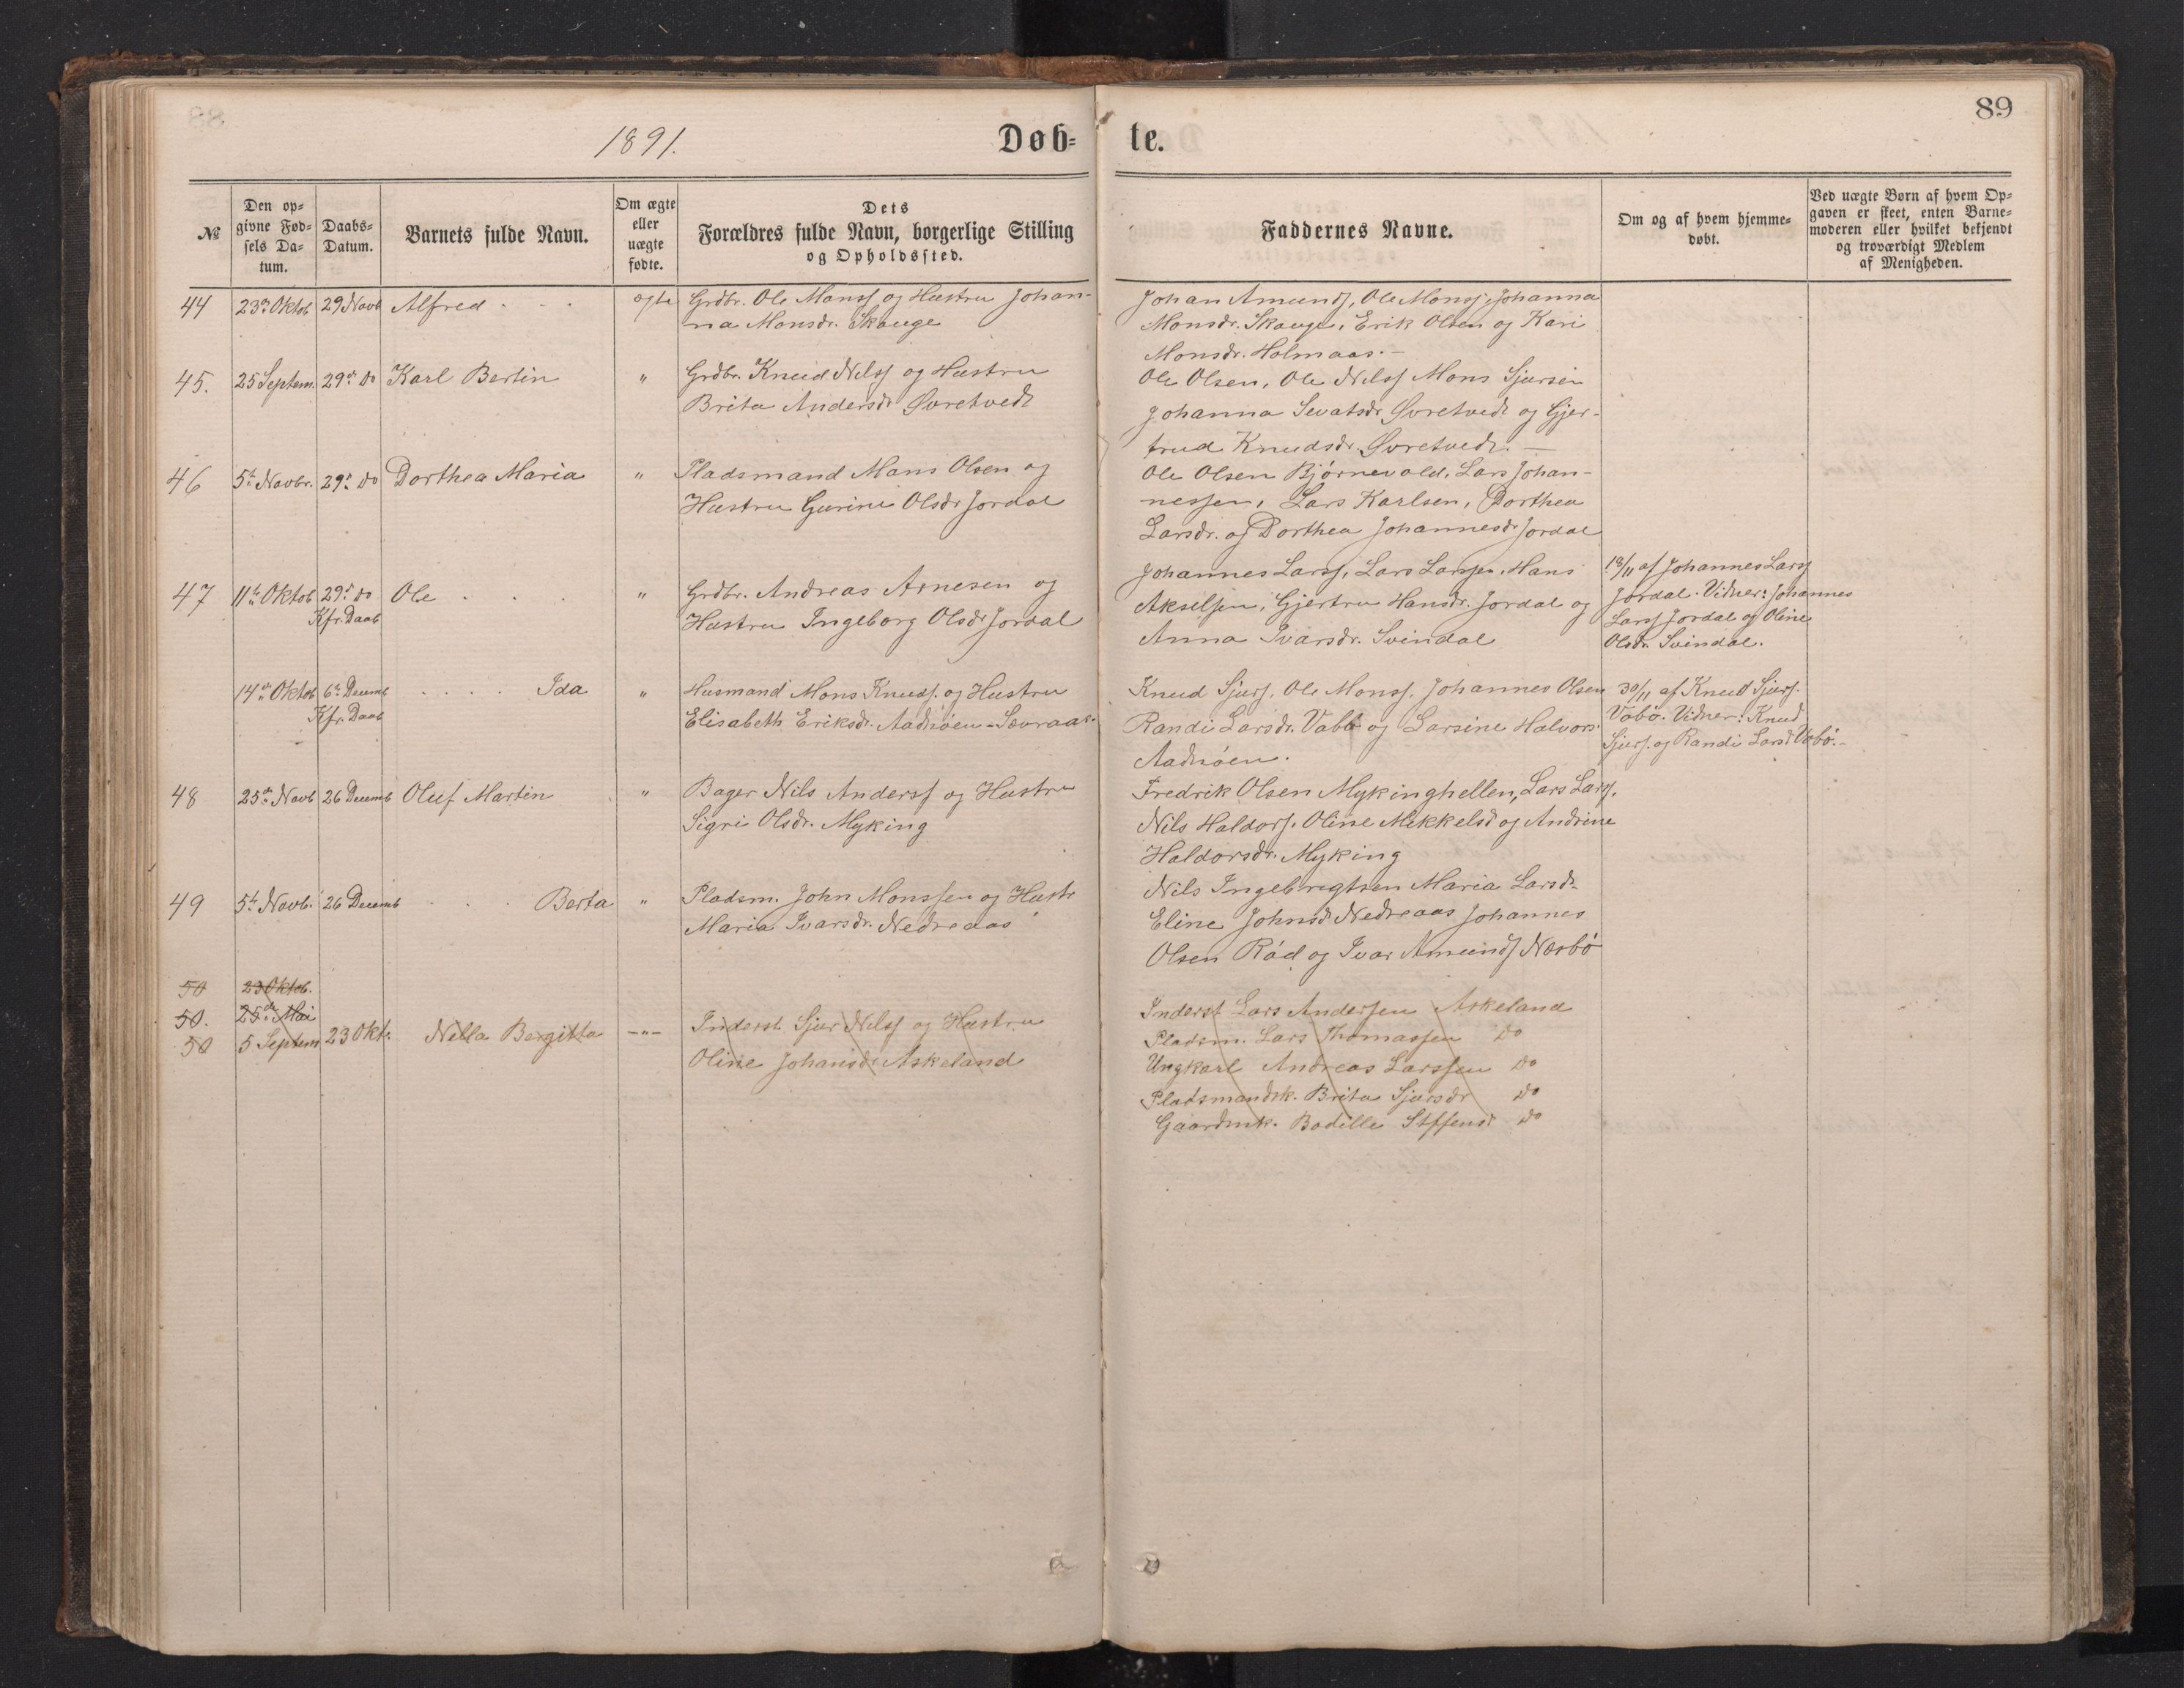 89
1891.
Døb-
te.
№
Den op-
givne Fød-
sels Da-
tum.
Daabs-
Datum.
Barnets fulde Navn.
Om ægte
eller
uægte
fødte.
Dets
Forældres fulde Navn, borgerlige Stilling
og Opholdssted.
Faddernes Navne.
Om og af hvem hjemme-
døbt.
Ved uægte Børn af hvem Op-
gaven er skeet, enten Barne-
moderen eller hvilket bekjendt
og troværdigt Medlem
af Menigheden.
44 23de Oktob 29 Novb Alfred . . . ægte Grdbr. Ole Monss og Hustru Johan-
na Monsdr. Skauge
Johan Amunds, Ole Monss, Johanna
Monsdr. Skauge, Erik Olsen og Kari
Monsdr. Holmaas.-
45. 25 Septem. 29de Do Karl Bertin " Grdbr. Knud Nilss og Hustru
Brita Andersdr Øvretvedt
Ole Olsen, Ole Nilss Mons Sjursen
Johanna Sevatsdr. Øvretvedt og Gjer-
trud Knudsdr. Øvretvedt.-
46 5te Novbr. 29de Do Dorthea Maria " Pladsmand Mons Olsen og
Hustru Gurine Olsdr Jordal
Ole Olsen Bjørnevold, Lars Johan-
nessen, Lars Karlsen, Dorthea
Larsdr. og Dorthea Johannesdr Jordal
47 11te Oktob 29de Do Ole . . . " Grdbr. Andreas Arnesen og
Kfr. Daab
Hustru Ingeborg Olsdr Jordal
Johannes Larss, Lars Larssen, Hans
Akselsen, Gjertru Hansdr. Jordal og
Anna Ivarsdr. Svindal
13/11 af Johannes Larss
Jordal. Vidner: Johannes
Larss Jordal og Oline
Olsdr. Svindal.
14de Oktob 6te Decemb . . . . Ida " Husmand Mons Knuds. og Hustru
Kfr. Daab
Elisabeth Eriksdr. Aadnøen-Sævraas.
Knud Sjurs, Ole Monss, Johannes Olsen
Randi Larsdr. Vabø og Larsine Halvors
Aadnøen.
30/11 af Knud Sjurs.
Vabø. Vidner: Knud
Sjurs. og Randi Larsd Vabø.-
48 25de Novb 26 Decemb Oluf Martin " Bager Nils Anderss og Hustru
Sigri Olsdr. Myking
Fredrik Olsen Mykinghellen, Lars Larss,
Nils Haldors. Oline Mikkelsd og Andrine
Haldorsdr. Myking
49 5te Novb. 26 Decemb . . . Berta " Pladsm. John Monssen og Hustr
Maria Ivarsdr. Nedreaas
Nils Ingebregtsen Maria Larsdr.
Eline Johnsd Nedreaas Johannes
Olsen Rød og Ivar Amunds Nesbø
50 23 Oktob.
50. 25de Mai
50 5 Septem 23 Okt. Nilla Bergitta -"- Inderst. Sjur Nilss og Hustru
Oline Johansdr Askeland
Inderst Lars Anderssen Askeland
Pladsm. Lars Thomassen Do
Ungkarl Andreas Larssen Do
Pladsmandsk. Brita Sjursdr Do
Gaardmk. Bodille Steffensd Do